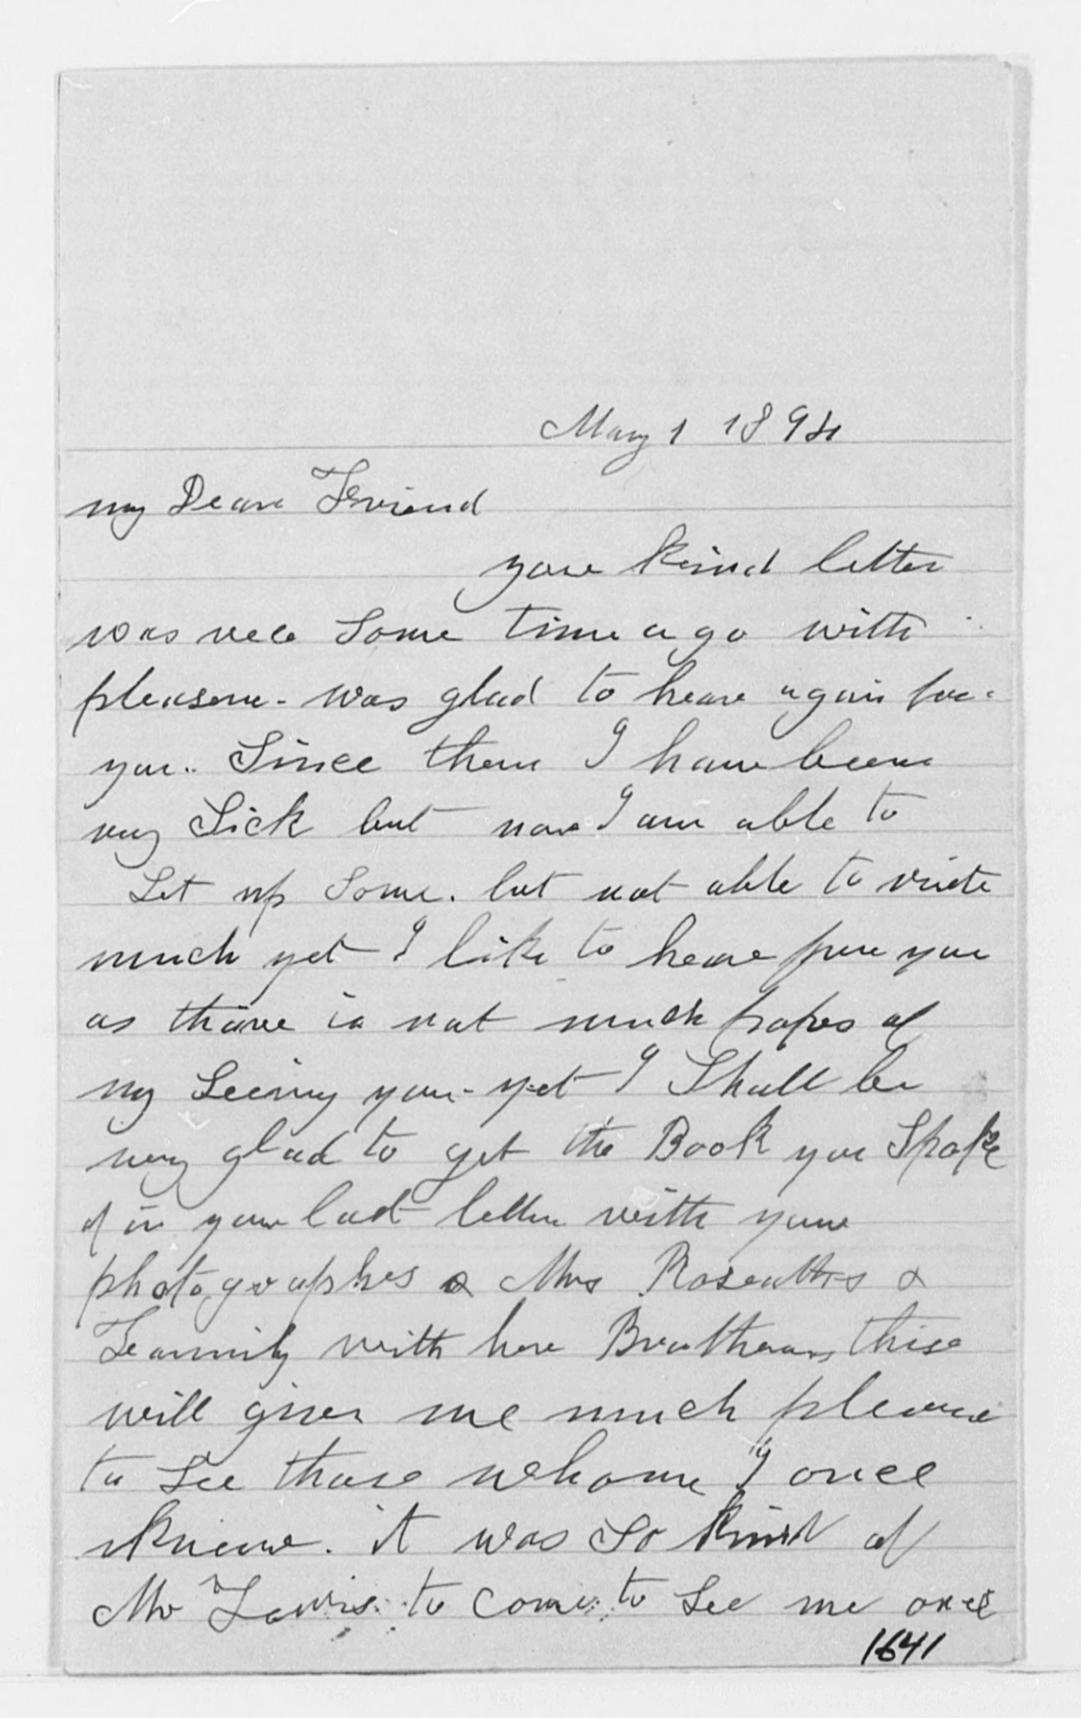 May 1 1894
my Dear Friend
your kind letter
was rece Some time ago with
pleasure. was glad to heare again
you. Since then I have been
very Sick but now I am able to
Set up Some. but not able to write
much yet I like to heare you
as thare is not much hopes of
my Seeing you. yet I Shall be
very glad to get the Book you Spoke
of in your last letter with your
photographes & Mrs &
Family with her this
will give me much pleasure
to See those whome I once
knew. it was So kind of
Mr to come to See me once
1641